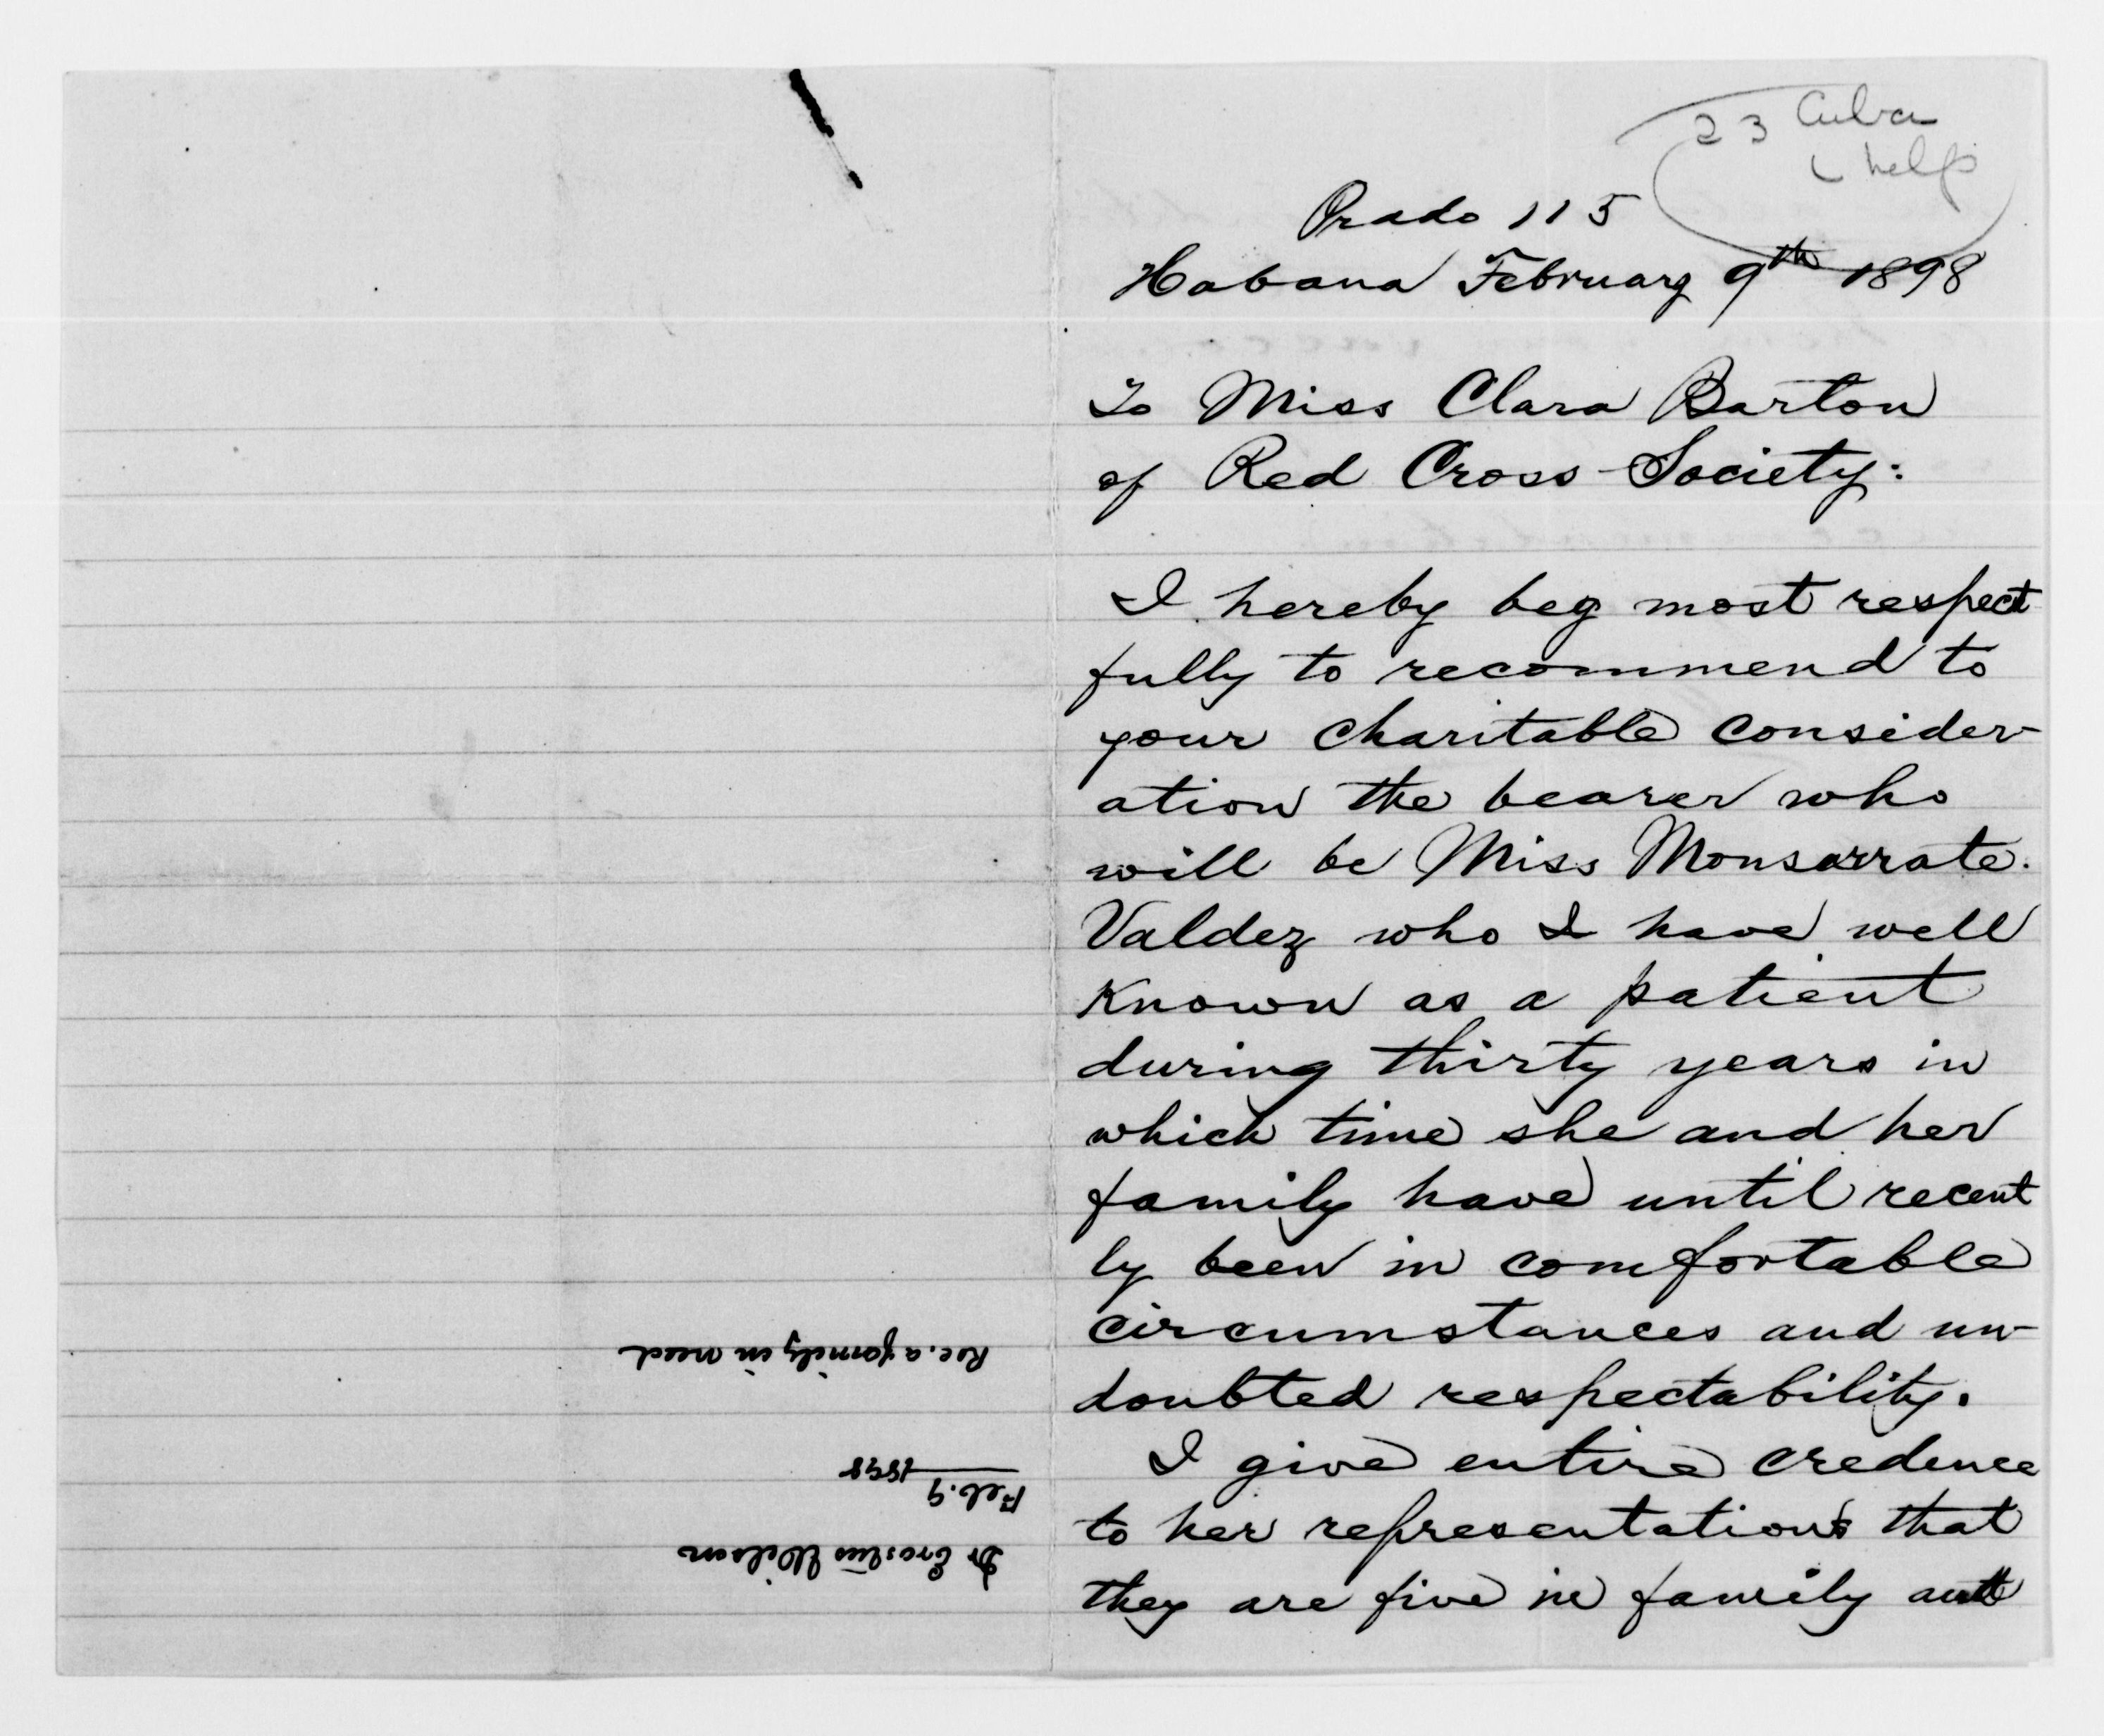 23 Cuba
help
Prado 115
Habana February 9th 1898
To Miss Clara Barton
of Red Cross Society:
I hereby beg most respect
fully to recommend to
your charitable consider-
ation the bearer who
will be Miss Monsarrate
Valdez who I have well
known as a patient
during thirty years in
which time she and her
family have until recent
ly been in comfortable
circumstances and un-
doubted respectability.
I give entire credence
to her representations that
they are five in family
Dr Erastus Wilson
Feb. 9
1898
Rec. a family in need